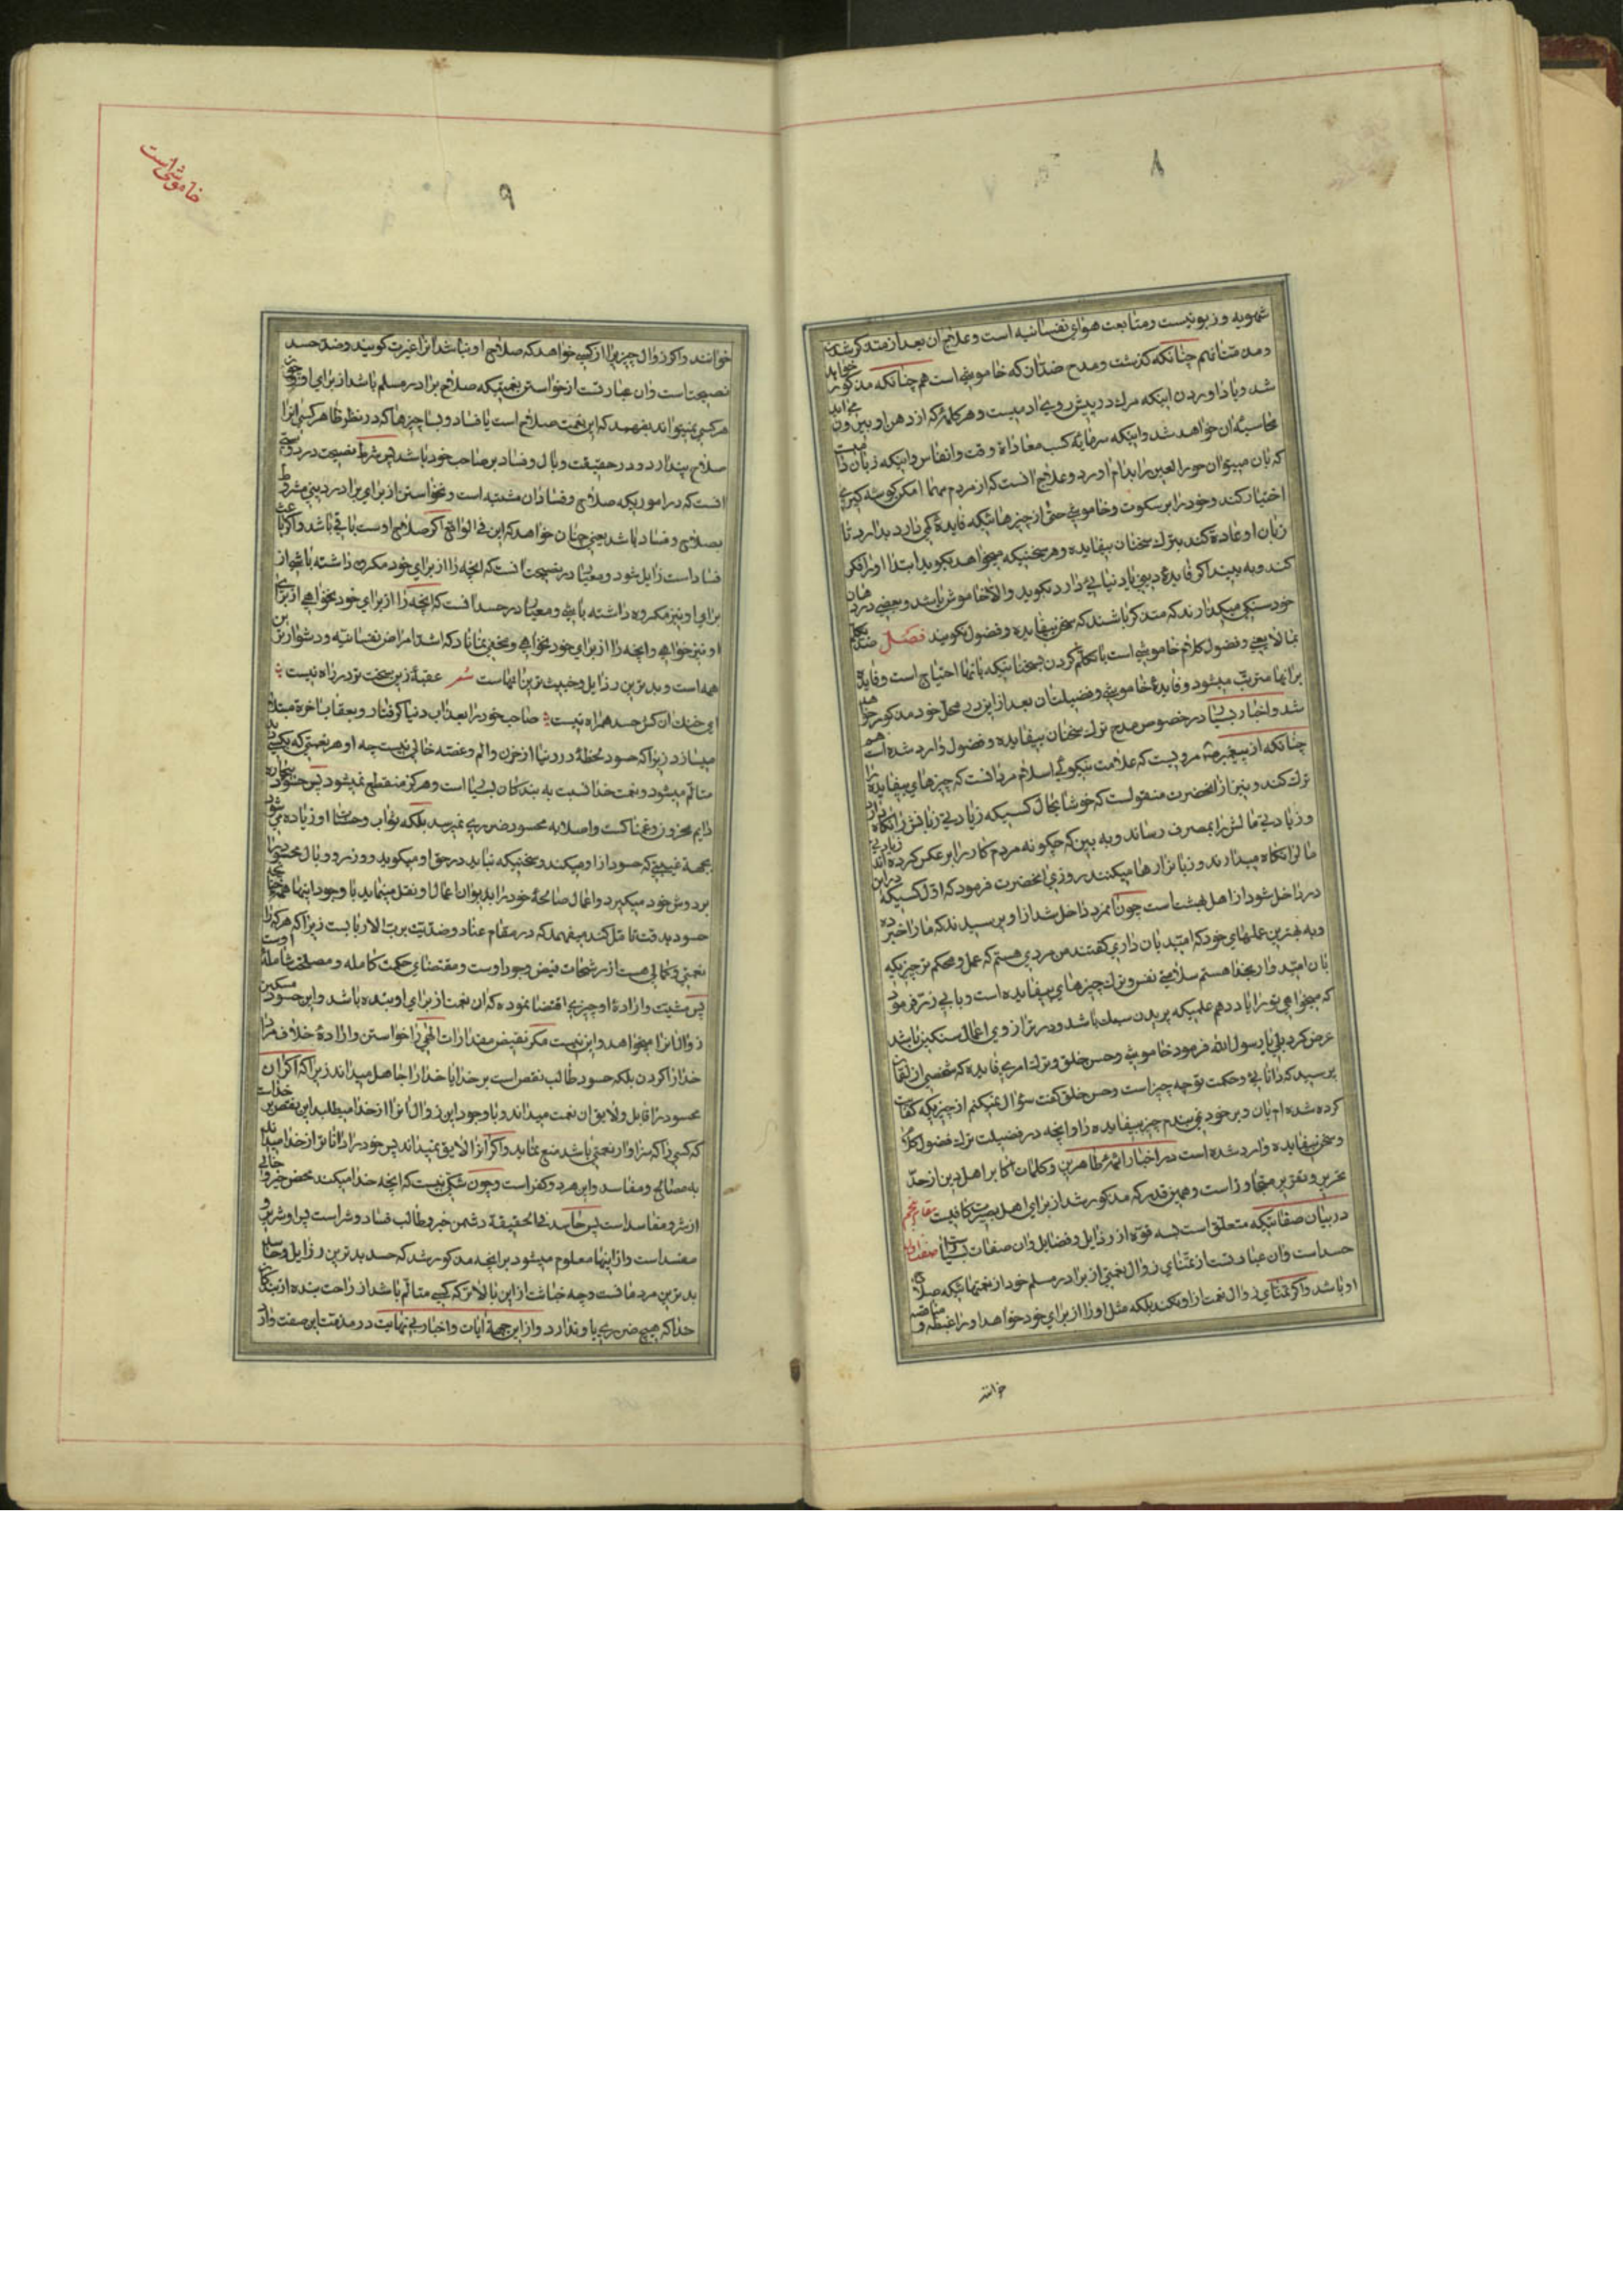 ۸
شهویه و زبونیست و متابعت هوای نفسانیه است و علاج ان بعد از متذکر شدن
و مذمتشانهم چنانکه گذشت و مدح ضدّان که خاموشی است هم چنانکه مذکور خواهد
شد و یاد اوردن اینکه مرك در پیش روی ادمیست و هر کلمهٔ که از دهن او بیرون می اید
محاسبهٔ ان خواهد شد و اینکه سرمایهٔ کسب سعاداة وقت و انفاس و اینکه زبان دامیست
که بان میتوان حور العین را بدام اورد و علاج انست که از مردم مهما امکن گوشه گیری
اختیار کند و خود را بر سکوت و خاموشی حتی از چیزهائیکه فایدهٔ کمی دارد بدارد تا
زبان او عادة کند بترك سخنان بیفایده و هر سخنیکه میخواهد بگوید ابتدا او را فکر
کند و به بیند اگر فایدهٔ دینی یا دنیائی دارد بگوید والا خاموش باشد و بعضی در دهان
خود سنگی میگذارند که متذکر باشند که سخن بیفایده و فضول نگویند فصل ضد تکلم
بما لا یعنی و فضول کلام خاموشی است یا تکلم کردن بسخنانیکه بانها احتیاج است و فایدهٔ
برانها مترتب میشود و فایدهٔ خاموشی و فضیلت ان بعد از این در محل خود مذکور خواهد
شد و اخبار بسیار در خصوص مدح ترك سخنان بیفایده و فضول وارد شده است هم
چنانکه از پیغمبر ص مرویست که علامت نیکوئی اسلام مرد انست که چیزهای بیفایده را
ترك کند و نیز از انحضرت منقولست که خوشا بحال کسیکه زیادتی زبانش را نگاه دارد
و زیادتی مالش را بمصرف رساند و به بین که چگونه مردم کار را بر عکس کرده اند زیادتی
مال را نگاه میدارند و زبانرا رها میکنند روزی انحضرت فرمود که اول کسیکه در این
در داخل شود از اهل بهشت است چون انمرد داخل شد از او پرسیدند که ما را خبر ده
و به بهترین عملهای خود که امید بان داری گفتند من مردی هستم که عمل و محکم تر چیزیکه
بان امید وار بخدا هستم سلامتی نفس و ترك چیزهای بیفایده است و بابی ذر فرمود
که میخواهی تو را یاد دهم علمیکه بر بدن سبك باشد و در ترازوی اعمال سنگین باشد
عرض کرد بلی یا رسول الله فرمود خاموشی و حسن خلق و ترك امر بی فایده که شخصی از لقمان
پرسید که دانائی و حکمت تو چه چیز است و حسن خلق گفت سؤال نمیکنم از چیزیکه کفایت
کرده شده ام بان و بر خود نمی بندم چیز بیفایده را و انچه در فضیلت ترك فضول کلام
و سخن بیفایده وارد شده است در اخبار ائمهٔ طاهرین و کلمات اکابر اهل دین از حد
تحریر و تقریر متجاوز است و همین قدر که مذکور شد از برای اهل بصیرت کافیست مقام پنجم
در بیان صفاتیکه متعلق است بسه قوّه از رذایل و فضایل و ان صفات بسیار است صفت اول
حسد است و ان عبارتست از تمنای زوال نعمتی از برادر مسلم خود از نعمتهائیکه صلاح
او باشد و اگر تمنای زوال نعمت از او نکند بلکه مثل او را از برای خود خواهد او را غبطه و منافسه
خوانند
۹
خاموشی است
خوانند و اگر زوال چیزی را از کسی خواهد که صلاح او نباشد انرا غیرت گویند و ضد حسد
نصیحت است و ان عبارتست از خواستن نعمتیکه صلاح برادر مسلم باشد از برای او و چون
هر کسی نمیتواند بفهمد که این نعمت صلاح است یا فساد و بسا چیزها که در نظر ظاهر کسی انرا
صلاح پندارد و در حقیقت وبال و فساد بر صاحب خود باشد پس شرط نصیحت در دوستی
انست که در اموریکه صلاح و فساد ان مشتبه است و نخواستن از برای برادر دینی مشروط
بصلاح و فساد باشد یعنی چنان خواهد که این فی الواقع اگر صلاح اوست باقی باشد و اگر باعث
فساد است زایل شود و معیار در نصیحت انست که انچه را از برای خود مکروه داشته باشی از
برای او نیز مکروه داشته باشی و معیار در حسد انست که انچه را از برای خود بخواهی از برای
او نیز خواهی و انچه را از برای خود نخواهی و مخفی نماناد که اشد امراض نفسانیه و دشوارترین
همه است و بدترین رذایل و خبیث ترین انهاست شعر عقبهٔ زین سخت تر در راه نیست
ای خنك ان کش حسد همراه نیست صاحب خود را بعذاب دنیا گرفتار و بعقاب اخرة مبتلا
میسازد زیرا که حسود لحظهٔ در دنیا از حزن و الم و غصه خالی نیست چه او هر نعمتی که بکسی دید
متالم میشود و نعمت خدا نسبت به بندگان بسیار است و هرگز منقطع نمیشود پس حسود بیچاره
دایم محزون و غمناکست و اصلا به محسود ضرری نمیرسد بلکه ثواب و حسنات او زیاده می شود
بجهة غیبتی که حسود از او میکند و سخنیکه نباید در حق او میگوید و وزر و وبال محسود را
بر دوش خود میگیرد و اعمال صالحهٔ خود را بدیوان اعمال او نقل مینماید با وجود اینها همه هرگاه
حسود بدقت تامل کند میفهمد که در مقام عناد و ضدیّت برب الارباب است زیرا که هر که را
نعمتی و کمالی هست از رشحات فیض وجود اوست و مقتضای حکمت کامله و مصلحت شاملهٔ اوست
پس مشیت و ارادهٔ او چیزی اقتضا نموده که ان نعمت از برای او بنده باشد و این حسود مسکین
زوال انرا میخواهد و این نیست مگر نقیض مقدارات الهی را خواستن و ارادهٔ خلاف مراد
خدا را کردن بلکه حسود طالب نقص است بر خدا یا خدا را جاهل میداند زیرا که اگر ان
محسود را قابل و لایق ان نعمت میداند و با وجود این زوال انرا از خدا میطلب این نقص بر خداست
که کسی را که سزاوار نعمتی باشد منع نماید و اگر انرا لایق نمیداند پس خود را داناتر از خدا میداند
به مصالح و مفاسد و این هر دو کفر است و چون شکی نیست که انچه خدا میکند محض خیر و خالی
از شر و مفاسد است پس حاسد فی الحقیقة دشمن خیر و طالب فساد و شر است پس او شریر و
مفسد است و از اینها معلوم میشود بر انچه مذکور شد که حسد بدترین رذایل و حاسد
بدترین مردمانست و چه خباثت از این بالاتر که کسی متالم باشد از راحت بنده از بندگان
خدا که هیچ ضرری باو ندارد و از این جهة ایات و اخبار بی نهایت در مذمت این صفت وارد